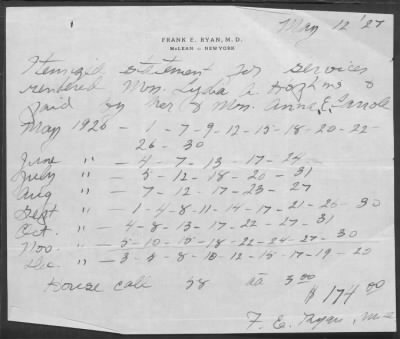 May 12 '27
FRANK E. RYAN, M.D.
McLEAN NEW YORK
Itemized statement for services
rendered Mrs. Lydia A Hopkins &
paid by her & Mrs. Anna E. Carroll
May 1926 - 1 - 7 - 9 - 12 - 15 - 18 - 20 - 22 -
26 - 30
June " - 4 - 7 - 13 - 17 - 24
July " - 5 - 12 - 18 - 20 - 31
Aug " - 7 - 12 - 17 - 23 - 27
Sept " - 1 - 4 - 8 - 11 - 14 - 17 - 21 - 26 - 30
Oct. " - 4 - 8 - 13 - 17 - 22 - 27 - 31
Nov. " - 5 - 10 - 15 - 18 - 22 - 24 - 27 - 30
Dec. " - 3 - 5 - 8 - 10 - 12 - 15 - 17 - 19 - 20
House call 58 āā 3.00
$ 174.00
F. E. Ryan, M.D.